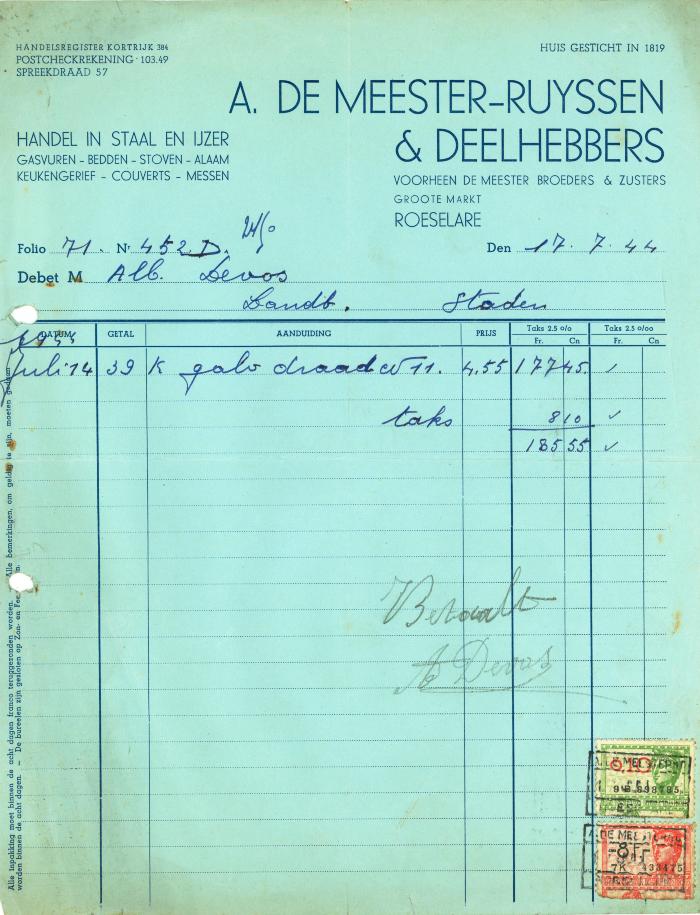 HANDELSREGISTER KORTRIJK 384
POSTCHECKREKENING · 103.49
SPREEKDRAAD 57
HUIS GESTICHT IN 1819
A. DE MEESTER-RUYSSEN
& DEELHEBBERS
HANDEL IN STAAL EN IJZER
GASVUREN - BEDDEN - STOVEN - ALAAM
KEUKENGERIEF - COUVERTS - MESSEN
VOORHEEN DE MEESTER BROEDERS & ZUSTERS
GROOTE MARKT
ROESELARE
Folio 71. Nr 452 D.
Den 17.7.44
Debet M Alb. Devos
Landb. Staden
DATUM GETAL AANDUIDING PRIJS Taks 2.5 o/o Taks 2.5 o/oo
Fr. Cn Fr. Cn
Juli 14 39 K galv draad N 11. 4.55 177 45
taks 8 10
185 55
Betaald
A Devos
Alle inpakking moet binnen de acht dagen franco teruggezonden worden. Alle bemerkingen, om geldig te zijn, moeten gedaan
worden binnen de acht dagen. — De bureelen zijn gesloten op Zon- en
0,10
8F
7K 433475